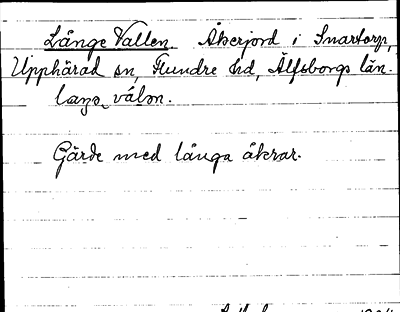 Långe Vallen. Åkerjord i Snartorp,
Upphärad sn, Flundre hd, Älfsborgs län.
Gärde med långa åkrar.